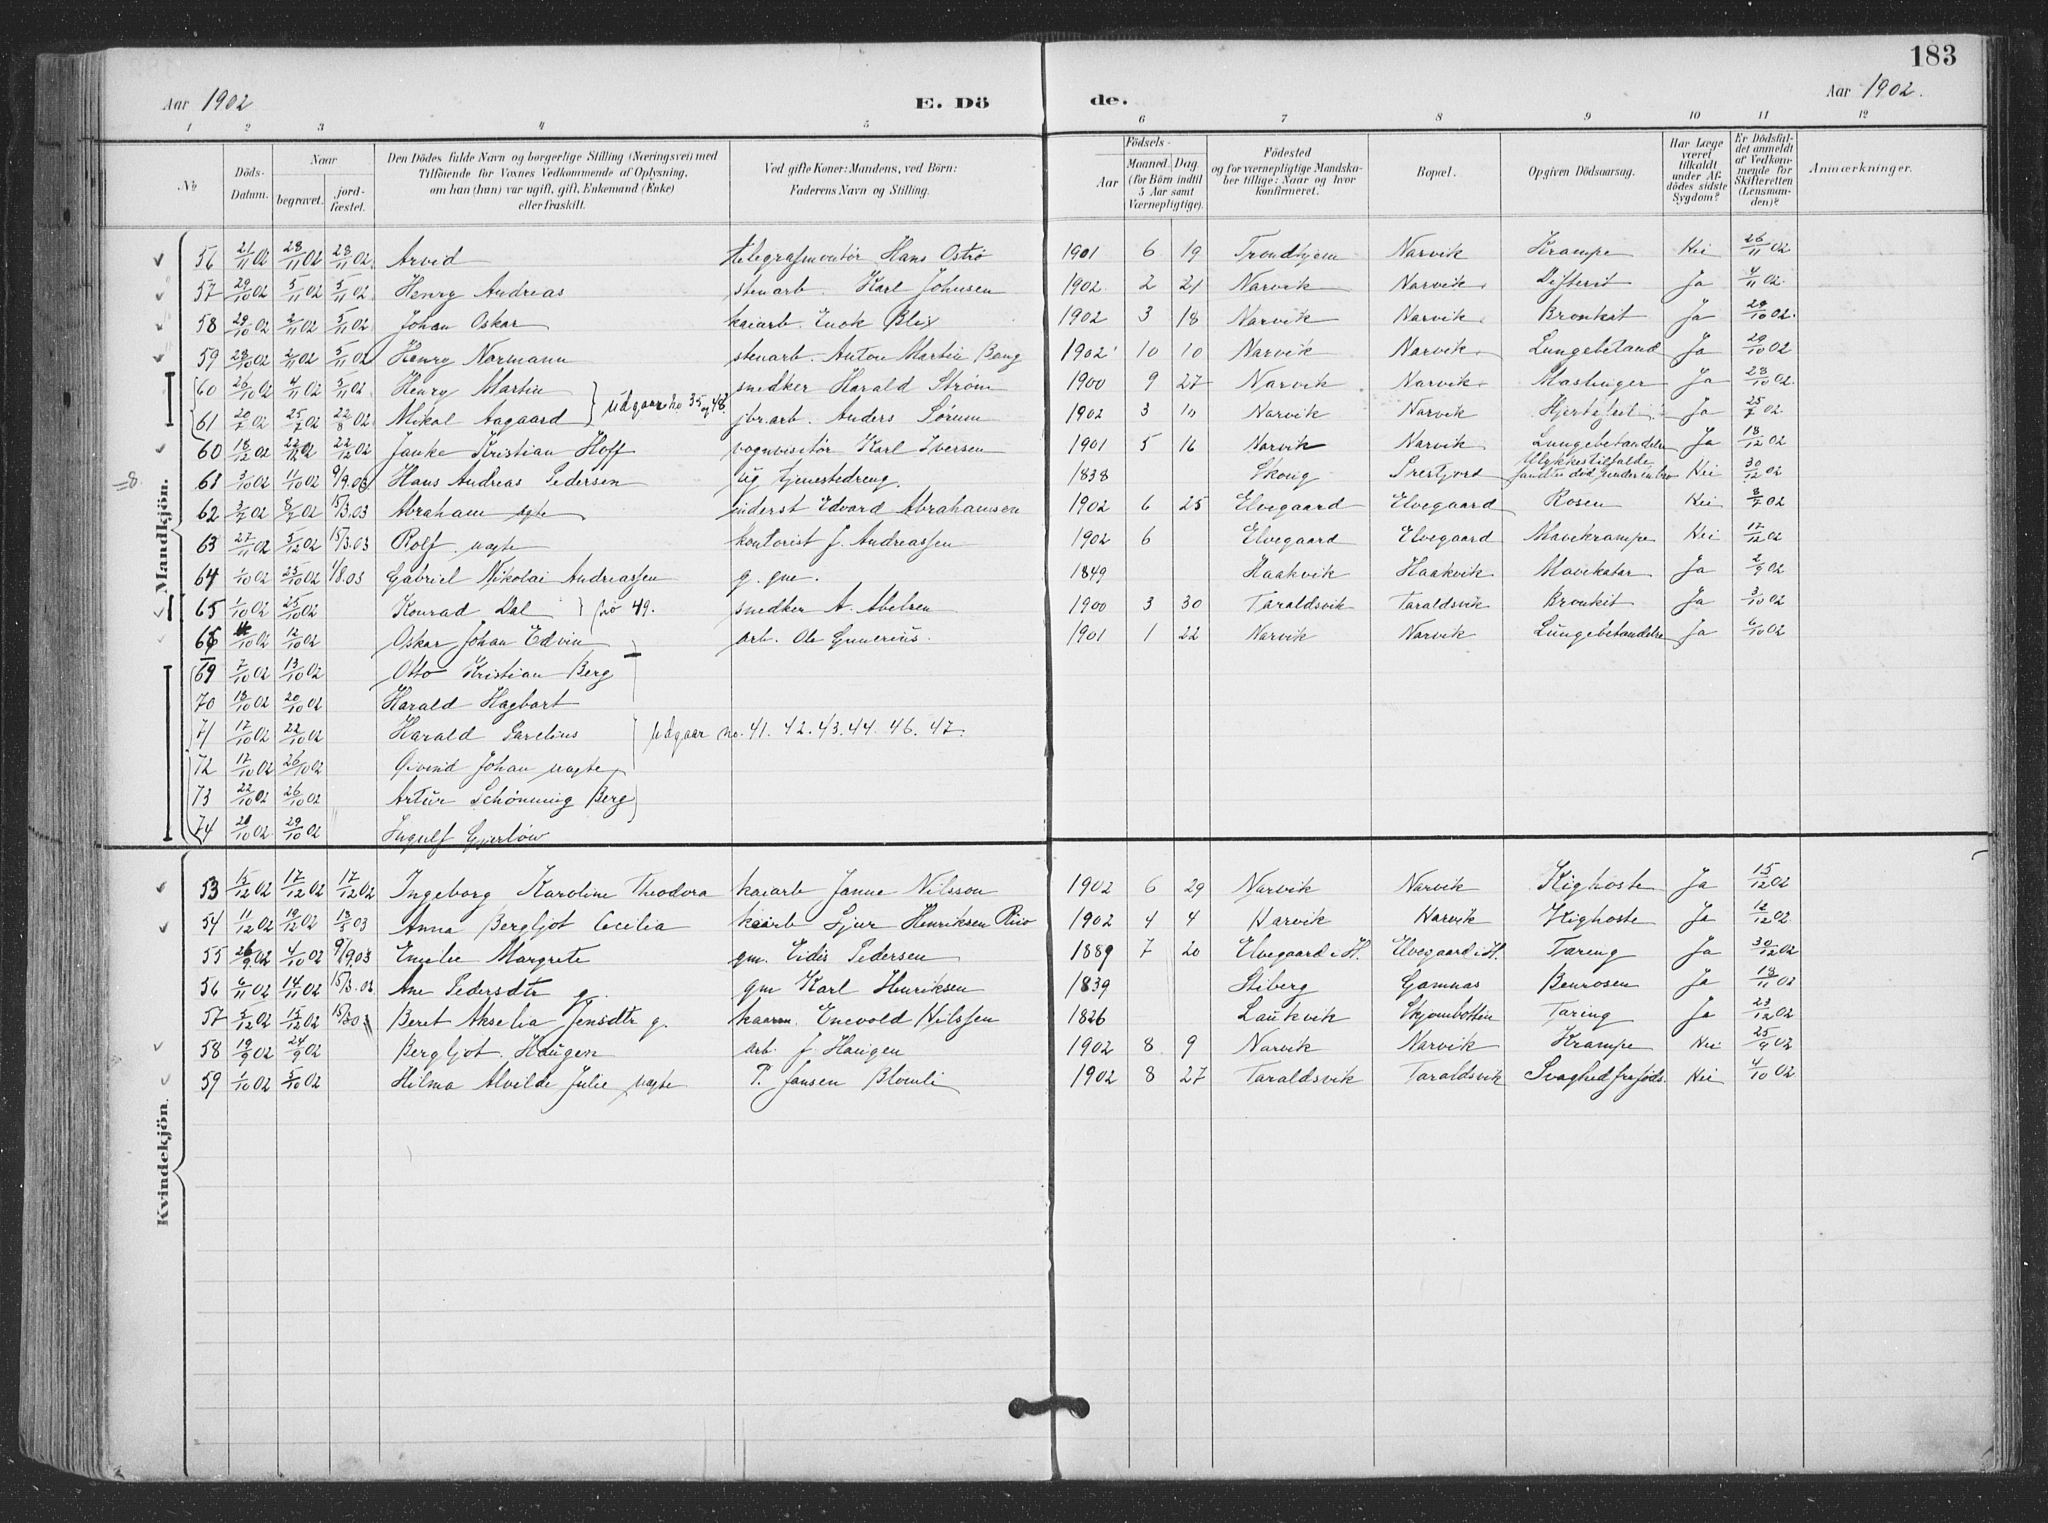 183
Aar 1902 E. Dö de. Aar 1902.
1 2 3 4 5 6 7 8 9 10 11 12
No
Döds-Datum.
Naar begravet. jordfæstet.
Den Dödes fulde Navn og borgerlige Stilling (Næringsvei) med Tilföiende for Voxnes Vedkommende af Oplysning, om han (hun) var ugift, gift, Enkemand (Enke) eller fraskilt.
Ved gifte Koner: Mandens, ved Börn: Faderens Navn og Stilling.
Födsels-
Aar Maaned. Dag. (for Börn indtil 5 Aar samt Værnepligtige).
Födested og for værnepligtige Mandskaber tillige: Naar og hvor konfirmeret.
Bopæl.
Opgiven Dödsaarsag.
Har Læge været tilkaldt under Afdödes sidste Sygdom?
Er Dödsfaldet anmeldt af Vedkommende for Skifteretten (Lensmanden)?
Anmærkninger.
Mandkjön.
56 21/11 02 28/11 02 28/11 02 Arvid telegrafmontør Hans Ostrø 1901 6 19 Trondhjem Narvik Krampe Nei 26/11 02
57 29/10 02 5/11 02 5/11 02 Henry Andreas stenarb. Karl Johnsen 1902 2 21 Narvik Narvik Difterit Ja 4/11 02
58 29/10 02 2/11 02 5/11 02 Johan Oskar kaiarb. Enok Blix 1902 3 18 Narvik Narvik Bronkit Ja 29/10 02
59 28/10 02 2/11 02 5/11 02 Henry Normann stenarb. Anton Martin Bang 1902 10 10 Narvik Narvik Lungebetænd Ja 29/10 02
60 26/10 02 4/11 02 5/11 02 Henry Martin snedker Harald Strøm 1900 9 27 Narvik Narvik Meslinger Ja 28/10 02
61 20/7 02 25/7 02 22/8 02 Mikal Aagaard } Udgaar no 35 og 48. jbr.arb. Anders Sørum 1902 3 11 Narvik Narvik Hjertefeil Ja 25/7 02
60 18/12 02 22/12 02 22/12 02 Janke Kristian Hoff vognvisitør Karl Iversen 1901 5 16 Narvik Narvik Lungebetændelse Ja 18/12 02
61 3/10 02 11/10 02 9/9.03 Hans Andreas Pedersen ug tjenestedreng. 1838 Skonig Nei 30/12 02
Ulykkestilfælde
62 3/7 02 8/7 02 15/3.03 Abraham ægte inderst Edvard Abrahamsen 1902 6 25 Elvegaard Elvegaard Rosen Nei 8/7 02
63 27/11 02 5/12 02 15/3.03 Rolf. uægte kontorist J. Andreassen 1902 6 Elvegaard Elvegaard Mavekrampe Nei 17/12 02
64 1/10 02 25/10 02 1/8.03 Gabriel Nikolai Andreassen g. gm. 1849 Haakvik Haakvik Mavekatar Ja 2/9 02
65 1/10 02 25/10 02 Konrad Dal } no 49. snedker A. Abelsen 1900 3 30 Taraldsvik Taraldsvik Bronkit Ja 3/10 02
66 4/10 02 12/10 02 Oskar Johan Edvin arb. Ole Gunerius. 1901 1 22 Narvik Narvik Lungebetændelse Ja 6/10 02
69 7/10 02 13/10 02 Otto Kristian Berg
70 18/10 02 20/10 02 Harald Hagbart
71 17/10 02 22/10 02 Harald Sarelius } Udgaar no. 41. 42. 43. 44. 46. 47.
72 17/10 02 26/10 02 Eivind Johan uægte
73 22/10 02 26/10 02 Artur Schönning Berg
74 28/10 02 29/10 02 Ingulf Gjerløw
Kvindekjön.
53 15/12 02 17/12 02 17/12 02 Ingeborg Karoline Theodora kaiarb Janne Nilsson 1902 6 29 Narvik Narvik Kighoste Ja 15/12 02
54 11/12 02 19/12 02 18/5 03 Anna Bergljot Cecilia kaiarb Sjur Henriksen 1902 4 4 Narvik Narvik Kighoste Ja 12/12 02
55 26/9 02 4/10 02 9/9 03 Emelie Margrete gm. Eidis Pedersen 1889 7 20 Elvegaard i H. Elvegaard i H. Tæring Ja 30/12 02
56 6/11 02 14/11 02 15/3.03 Ane Pedersdtr g. gm Karl Henriksen 1839 Stiberg Gamnæs Benrosen Ja 18/11 02
57 5/12 02 15/12 02 Beret Akselia Jensdtr g. Enevold Nilssen 1826 Laukvik Skjombotten Tæring Ja 23/12 02
58 19/9 02 24/9 02 Bergljot Haugen arb. J. Haugen 1902 8 9 Narvik Narvik Krampe Nei 25/9 02
59 1/10 02 5/10 02 Hilma Alvilde Julie uægte P. Jansen Blomli 1902 8 27 Taraldsvik Taraldsvik Svaghed fra føds. Nei 4/10 02